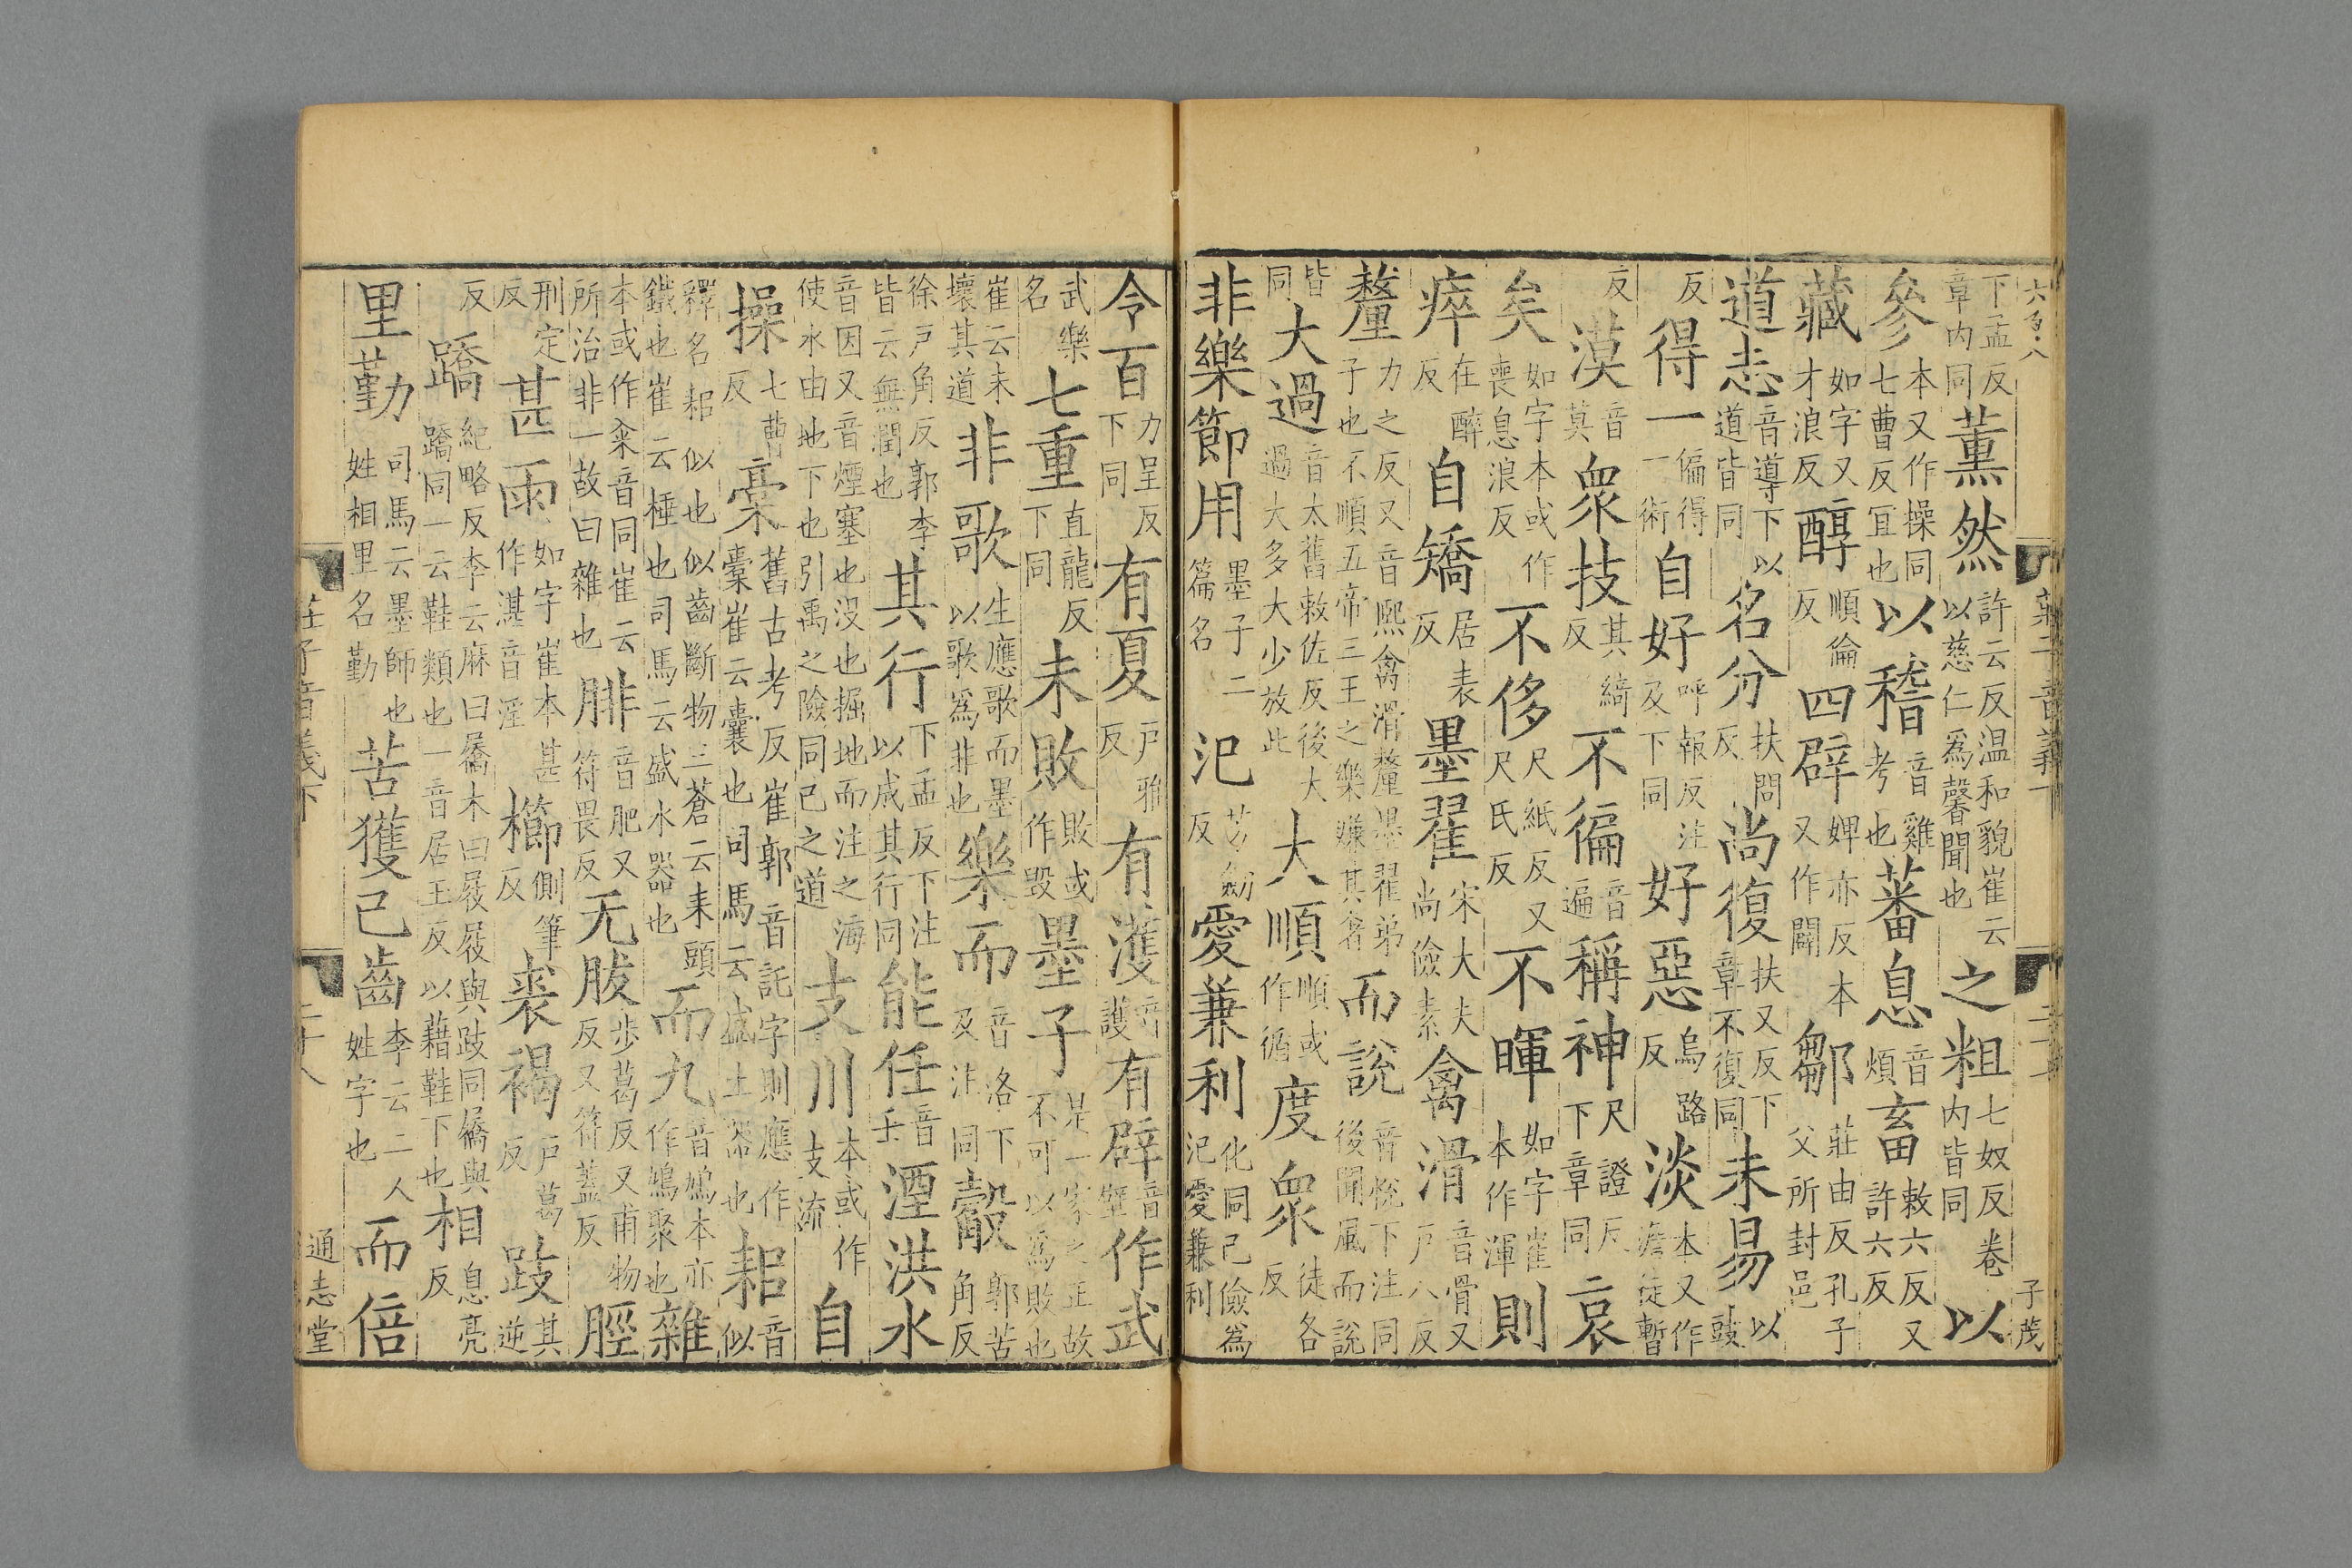 六百八 莊子音義 子茂
下孟反章内同薰然許云反温和貌崔云以慈仁爲馨聞也之粗七奴反卷内皆同以
參本又作操同七曹反宜也以稽音雞考也蕃息音煩畜敕六反又許六反
藏如字又才浪反醇順倫反四辟婢亦反本又作闢鄒莊由反孔子父所封邑
道志音導下以道皆同名分扶問反尚復扶又反下章不復同未易以豉
反得一偏得一術自好呼報反注及下同好惡烏路反淡本又作澹徒暫
反漠音莫衆技其綺反不徧音遍稱神尺證反下章同哀
矣如字本或作喪息浪反不侈尺紙反又尺氏反不暉如字崔本作渾則
瘁在醉反自矯居表反墨翟宋大夫尚儉素禽滑音骨又戸八反
釐力之反又音熙禽滑釐墨翟弟子也不順五帝三王之樂嫌其奢而說音悅下注同後聞風而說
皆同大過音太舊敕佐反後大過大多大少放此大順順或作循度衆徒各反
非樂節用墨子二篇名氾芳劒反愛兼利化同己儉爲氾愛兼利
令百力呈反下同有夏戸雅反有濩音護有辟音璧作武
武樂名七重直龍反下同未敗敗或作毀墨子是一家之正故不可以爲敗也
崔云未壞其道非歌生應歌而墨以歌爲非也樂而音洛下及注同觳郭苦角反
徐戸角反郭李皆云無潤也其行下孟反下注以成其行同能任音壬湮洪水
音因又音煙塞也没也掘地而注之海使水由地下也引禹之險同己之道支川本或作支流自
操七曹反橐舊古考反崔郭音託字則應作橐崔云囊也司馬云盛土器也耜音似
釋名耜似也似齒斷物三蒼云耒頭鐵也崔云棰也司馬云盛水器也而九音鳩本亦作鳩聚也雜
本或作籴音同崔云所治非一故曰雜也腓音肥又符畏反无胈步葛反又甫物反又符蓋反脛
刑定反甚雨如字崔本甚作湛音淫櫛側筆反裘褐戸葛反跂其逆
反蹻紀略反李云麻曰屩木曰屐屐與跂同屩與蹻同一云鞋類也一音居玉反以藉鞋下也相息亮反
里勤司馬云墨師也姓相里名勤苦獲已齒李云二人姓字也而倍
莊子音義下 二十八 通志堂